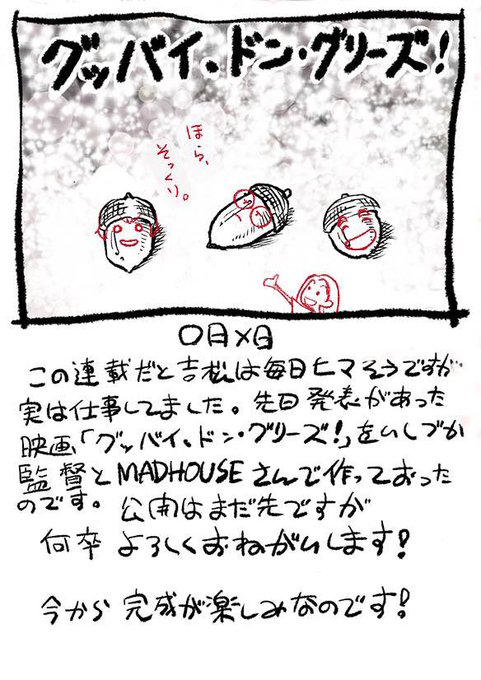 グッバイ、ドン・グリーズ!
ほら、
そっくり。
〇月×日
この連載だと吉松は毎日ヒマそうですが
実は仕事してました。先日発表があった
映画「グッバイ、ドン・グリーズ!」をいしづか
監督とMADHOUSEさんで作っておった
のです。公開はまだ先ですが
何卒よろしくおねがいします!
今から完成が楽しみなのです!